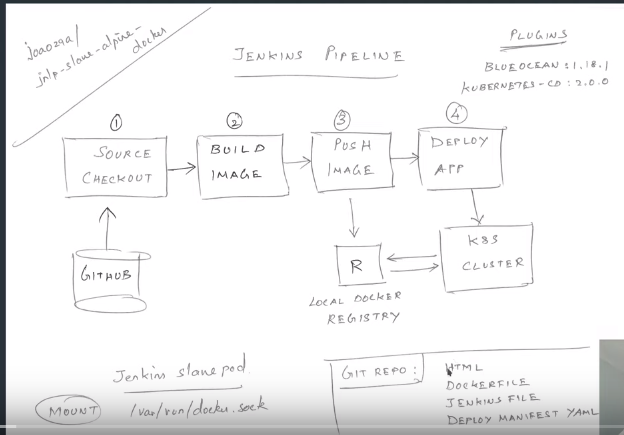 joao29a/
jnlp-slave-alpine-
docker
JENKINS PIPELINE
PLUGINS
BLUEOCEAN : 1.18.1
KUBERNETES-CD : 2.0.0
1
2
3
4
SOURCE
CHECKOUT
BUILD
IMAGE
PUSH
IMAGE
DEPLOY
APP
GITHUB
R
K8S
CLUSTER
LOCAL DOCKER
REGISTRY
Jenkins slave pod
MOUNT /var/run/docker.sock
GIT REPO :
HTML
DOCKERFILE
JENKINS FILE
DEPLOY MANIFEST YAML